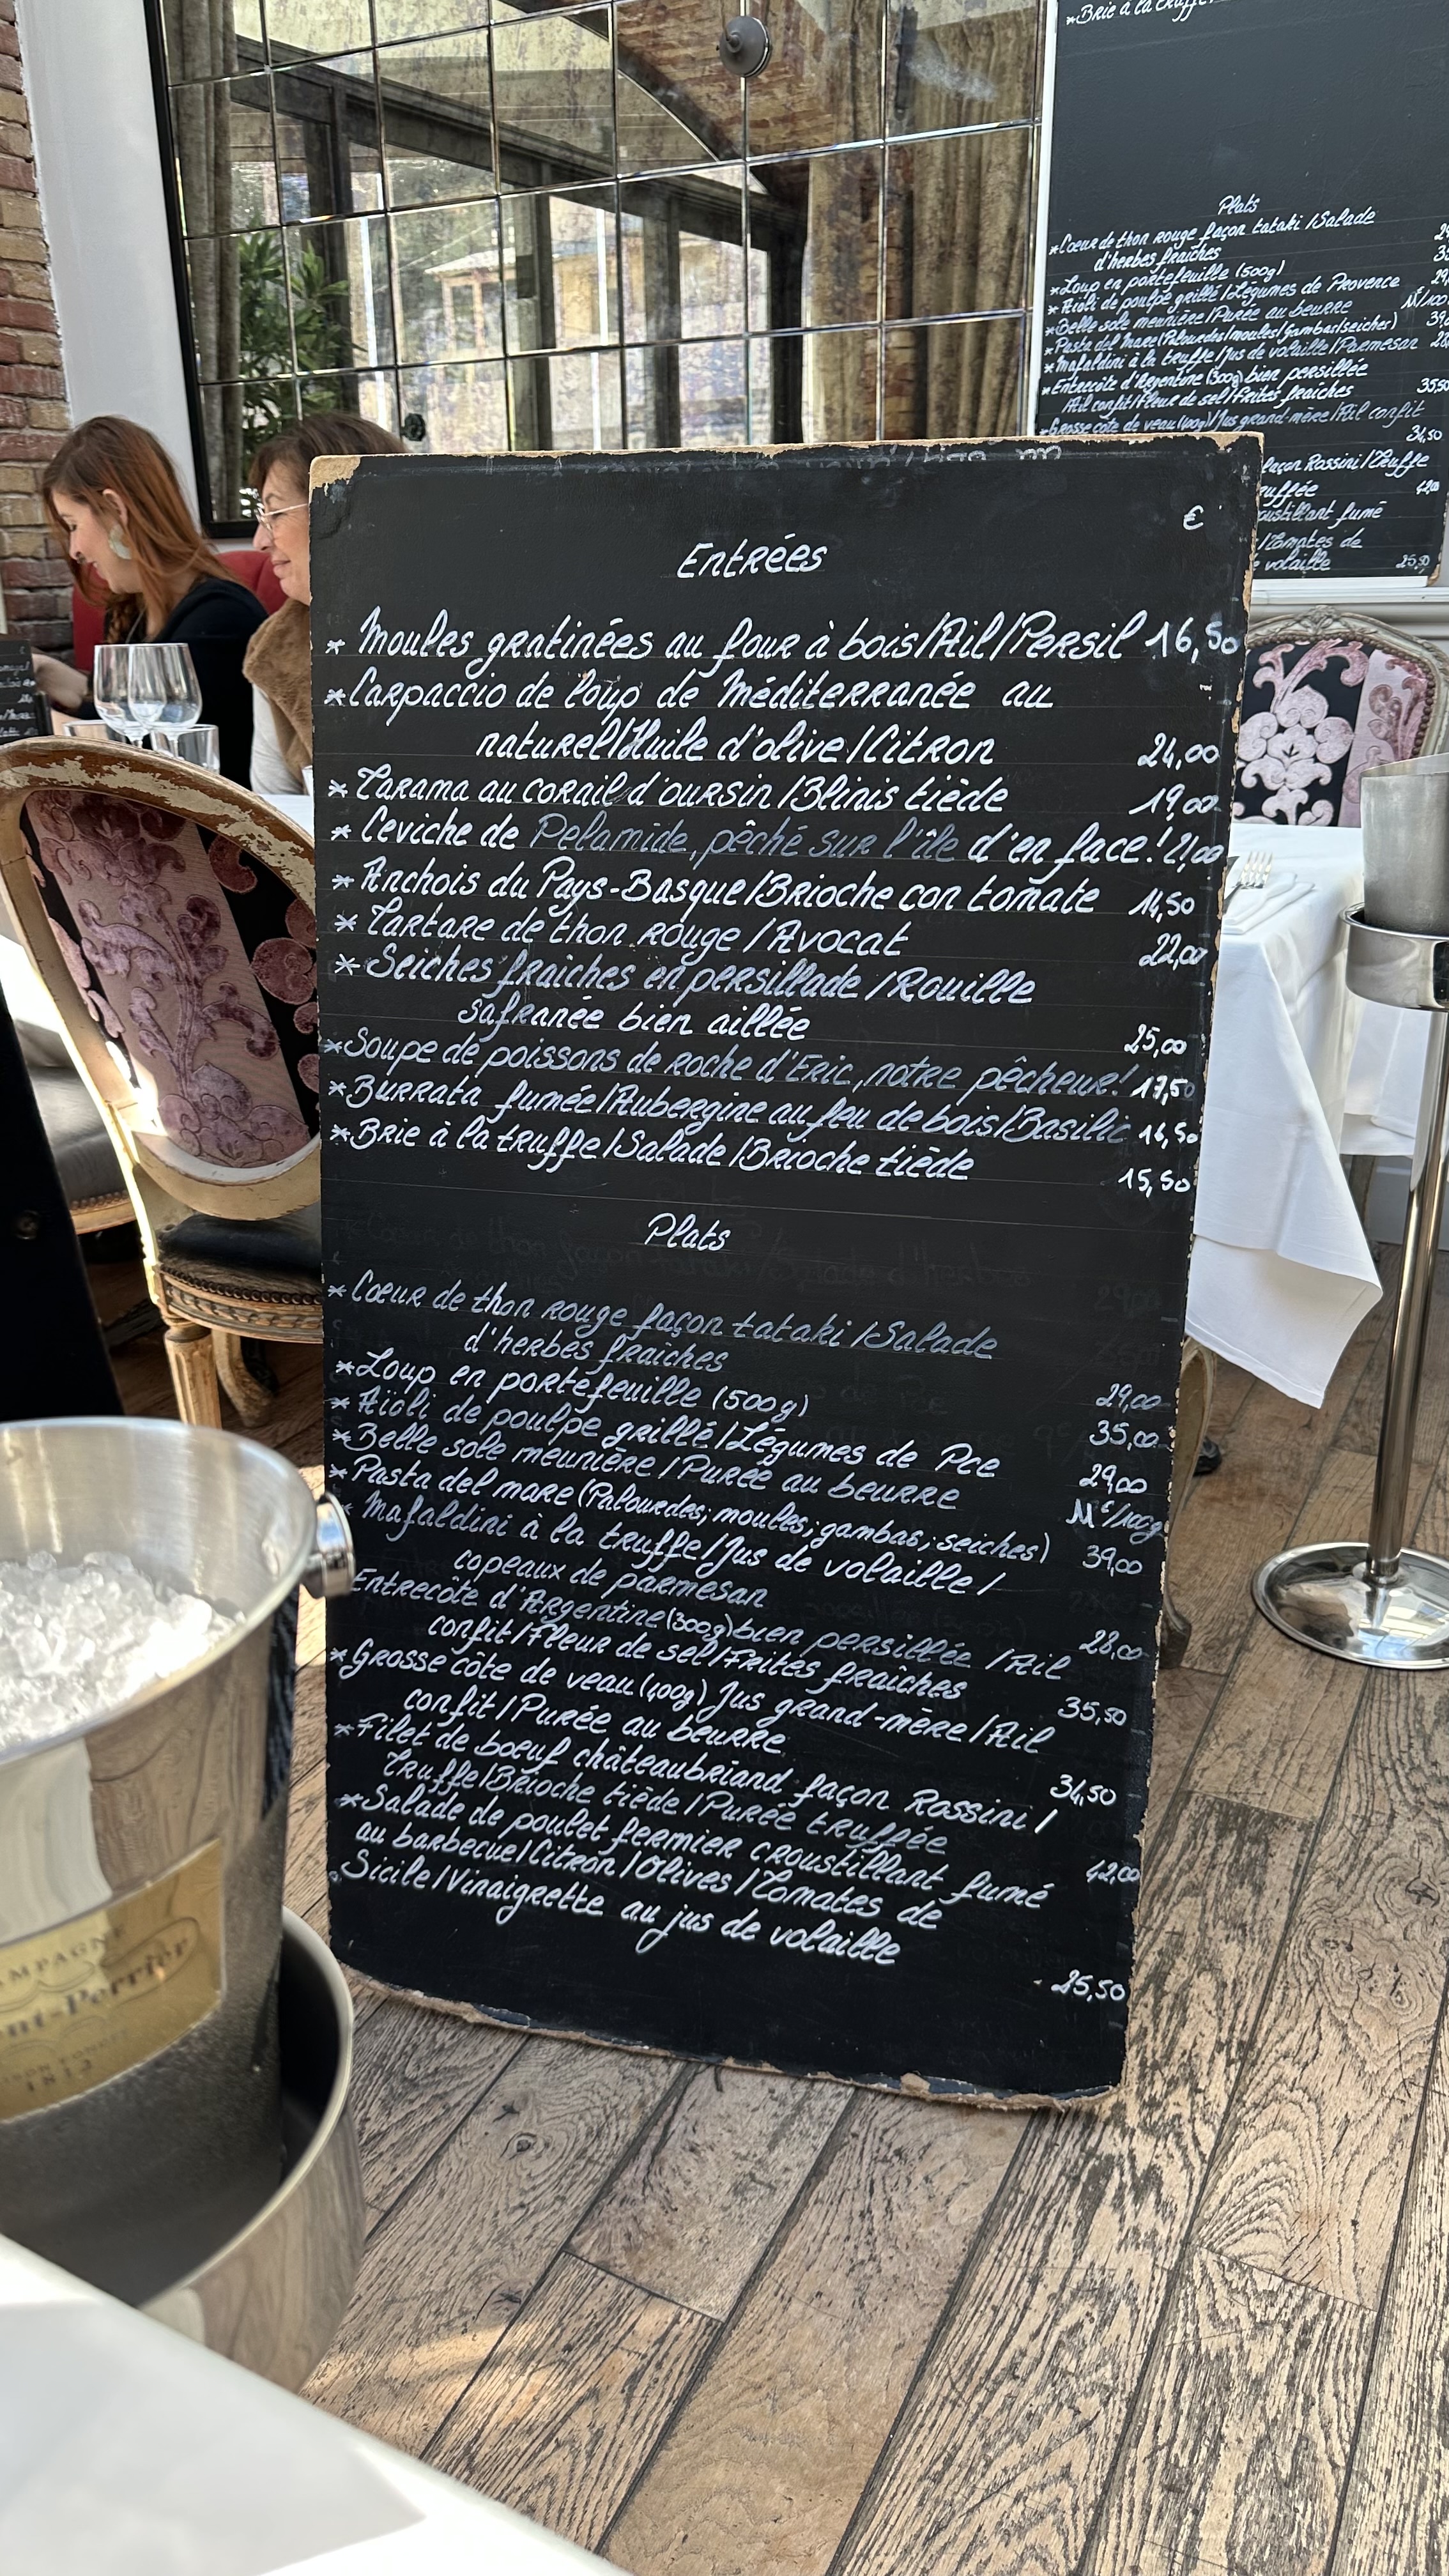 *Brie à la truffe
Plats
*Coeur de thon rouge façon tataki / Salade
d'herbes fraîches
*Loup en portefeuille (500g)
*Aïoli de poulpe grillé / Légumes de Provence
*Belle sole meunière / Purée au beurre
*Pasta del mare (Palourdes/moules/gambas/seiches)
*Mafaldini à la truffe / Jus de volaille / Parmesan
*Entrecôte d'Argentine (300g) bien persillée
Ail confit / Fleur de sel / Frites fraîches 35,50
Grosse côte de veau (400g) / Jus grand-mère / Ail confit
34,50
façon Rossini / Truffe
ruffée 42,00
oustillant fumé
/ Tomates de
volaille 25,50
€
Entrées
* Moules gratinées au four à bois / Ail / Persil 16,50
* Carpaccio de loup de Méditerranée au
naturel / Huile d'olive / Citron 24,00
* Tarama au corail d'oursin / Blinis tiède 19,00
* Ceviche de Pelamide, pêché sur l'île d'en face ! 21,00
* Anchois du Pays-Basque / Brioche con tomate 14,50
* Tartare de thon rouge / Avocat 22,00
* Seiches fraîches en persillade / Rouille
safranée bien aillée 25,00
* Soupe de poissons de roche d'Eric, notre pêcheur ! 17,50
* Burrata fumée / Aubergine au feu de bois / Basilic 16,50
* Brie à la truffe / Salade / Brioche tiède 15,50
Plats
* Coeur de thon rouge façon tataki / Salade
d'herbes fraîches 29,00
* Loup en portefeuille (500g) 35,00
* Aïoli de poulpe grillé / Légumes de Pce 29,00
* Belle sole meunière / Purée au beurre 11€/100g
* Pasta del mare (Palourdes; moules; gambas; seiches) 39,00
* Mafaldini à la truffe / Jus de volaille /
copeaux de parmesan 28,00
Entrecôte d'Argentine (300g) bien persillée / Ail
confit / Fleur de sel / Frites fraîches 35,50
* Grosse côte de veau (400g) Jus grand-mère / Ail
confit / Purée au beurre 34,50
* Filet de boeuf châteaubriand façon Rossini /
Truffe / Brioche tiède / Purée truffée 42,00
* Salade de poulet fermier croustillant fumé
au barbecue / Citron / Olives / Tomates de
Sicile / Vinaigrette au jus de volaille
25,50
1812